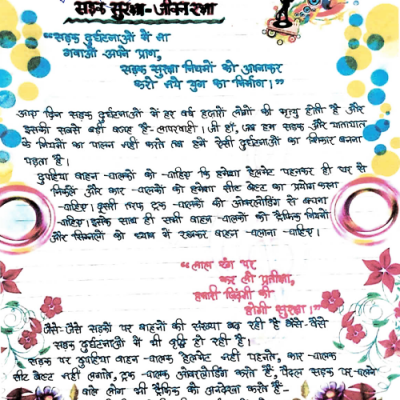 सड़क सुरक्षा-जीवन रक्षा
"सड़क दुर्घटनाओं में ना
गवाओं अपने प्राण,
सड़क सुरक्षा नियमों को अपनाकर
करो नये युग का निर्माण।"
आए दिन सड़क दुर्घटनाओं में हर वर्ष हजारों लोगों की मृत्यु होती है और
इसकी सबसे बड़ी वजह है- लापरवाही। जी हाँ, जब हम सड़क और यातायात
के नियमों का पालन नहीं करते तब हमें ऐसी दुर्घटनाओं का शिकार बनना
पड़ता है।
दुपहिया वाहन-चालकों को चाहिए कि हमेशा हेलमेट पहनकर ही घर से
निकले और कार-चालकों को हमेशा सीट बेल्ट का प्रयोग करना
चाहिए। दूसरी तरफ ट्रक-चालकों को ओवरलोडिंग से बचना
चाहिए। इसके साथ ही सभी वाहन-चालकों को ट्रैफिक नियमों
और सिग्नलों को ध्यान में रखकर वाहन चलाना चाहिए।
"लाल रंग पर
कर लो प्रतीक्षा,
हमारी जिंदगी की
होगी सुरक्षा।"
जैसे-जैसे सड़कों पर वाहनों की संख्या बढ़ रही है वैसे-वैसे
सड़क दुर्घटनाओं में भी वृद्धि हो रही है।
सड़क पर दुपहिया वाहन-चालक हेलमेट नहीं पहनते, कार-चालक
सीट बेल्ट नहीं लगाते, ट्रक-चालक ओवरलोडिंग करते हैं, पैदल सड़क पर चलने
वाले लोग भी ट्रैफिक को अनदेखा करते हैं-